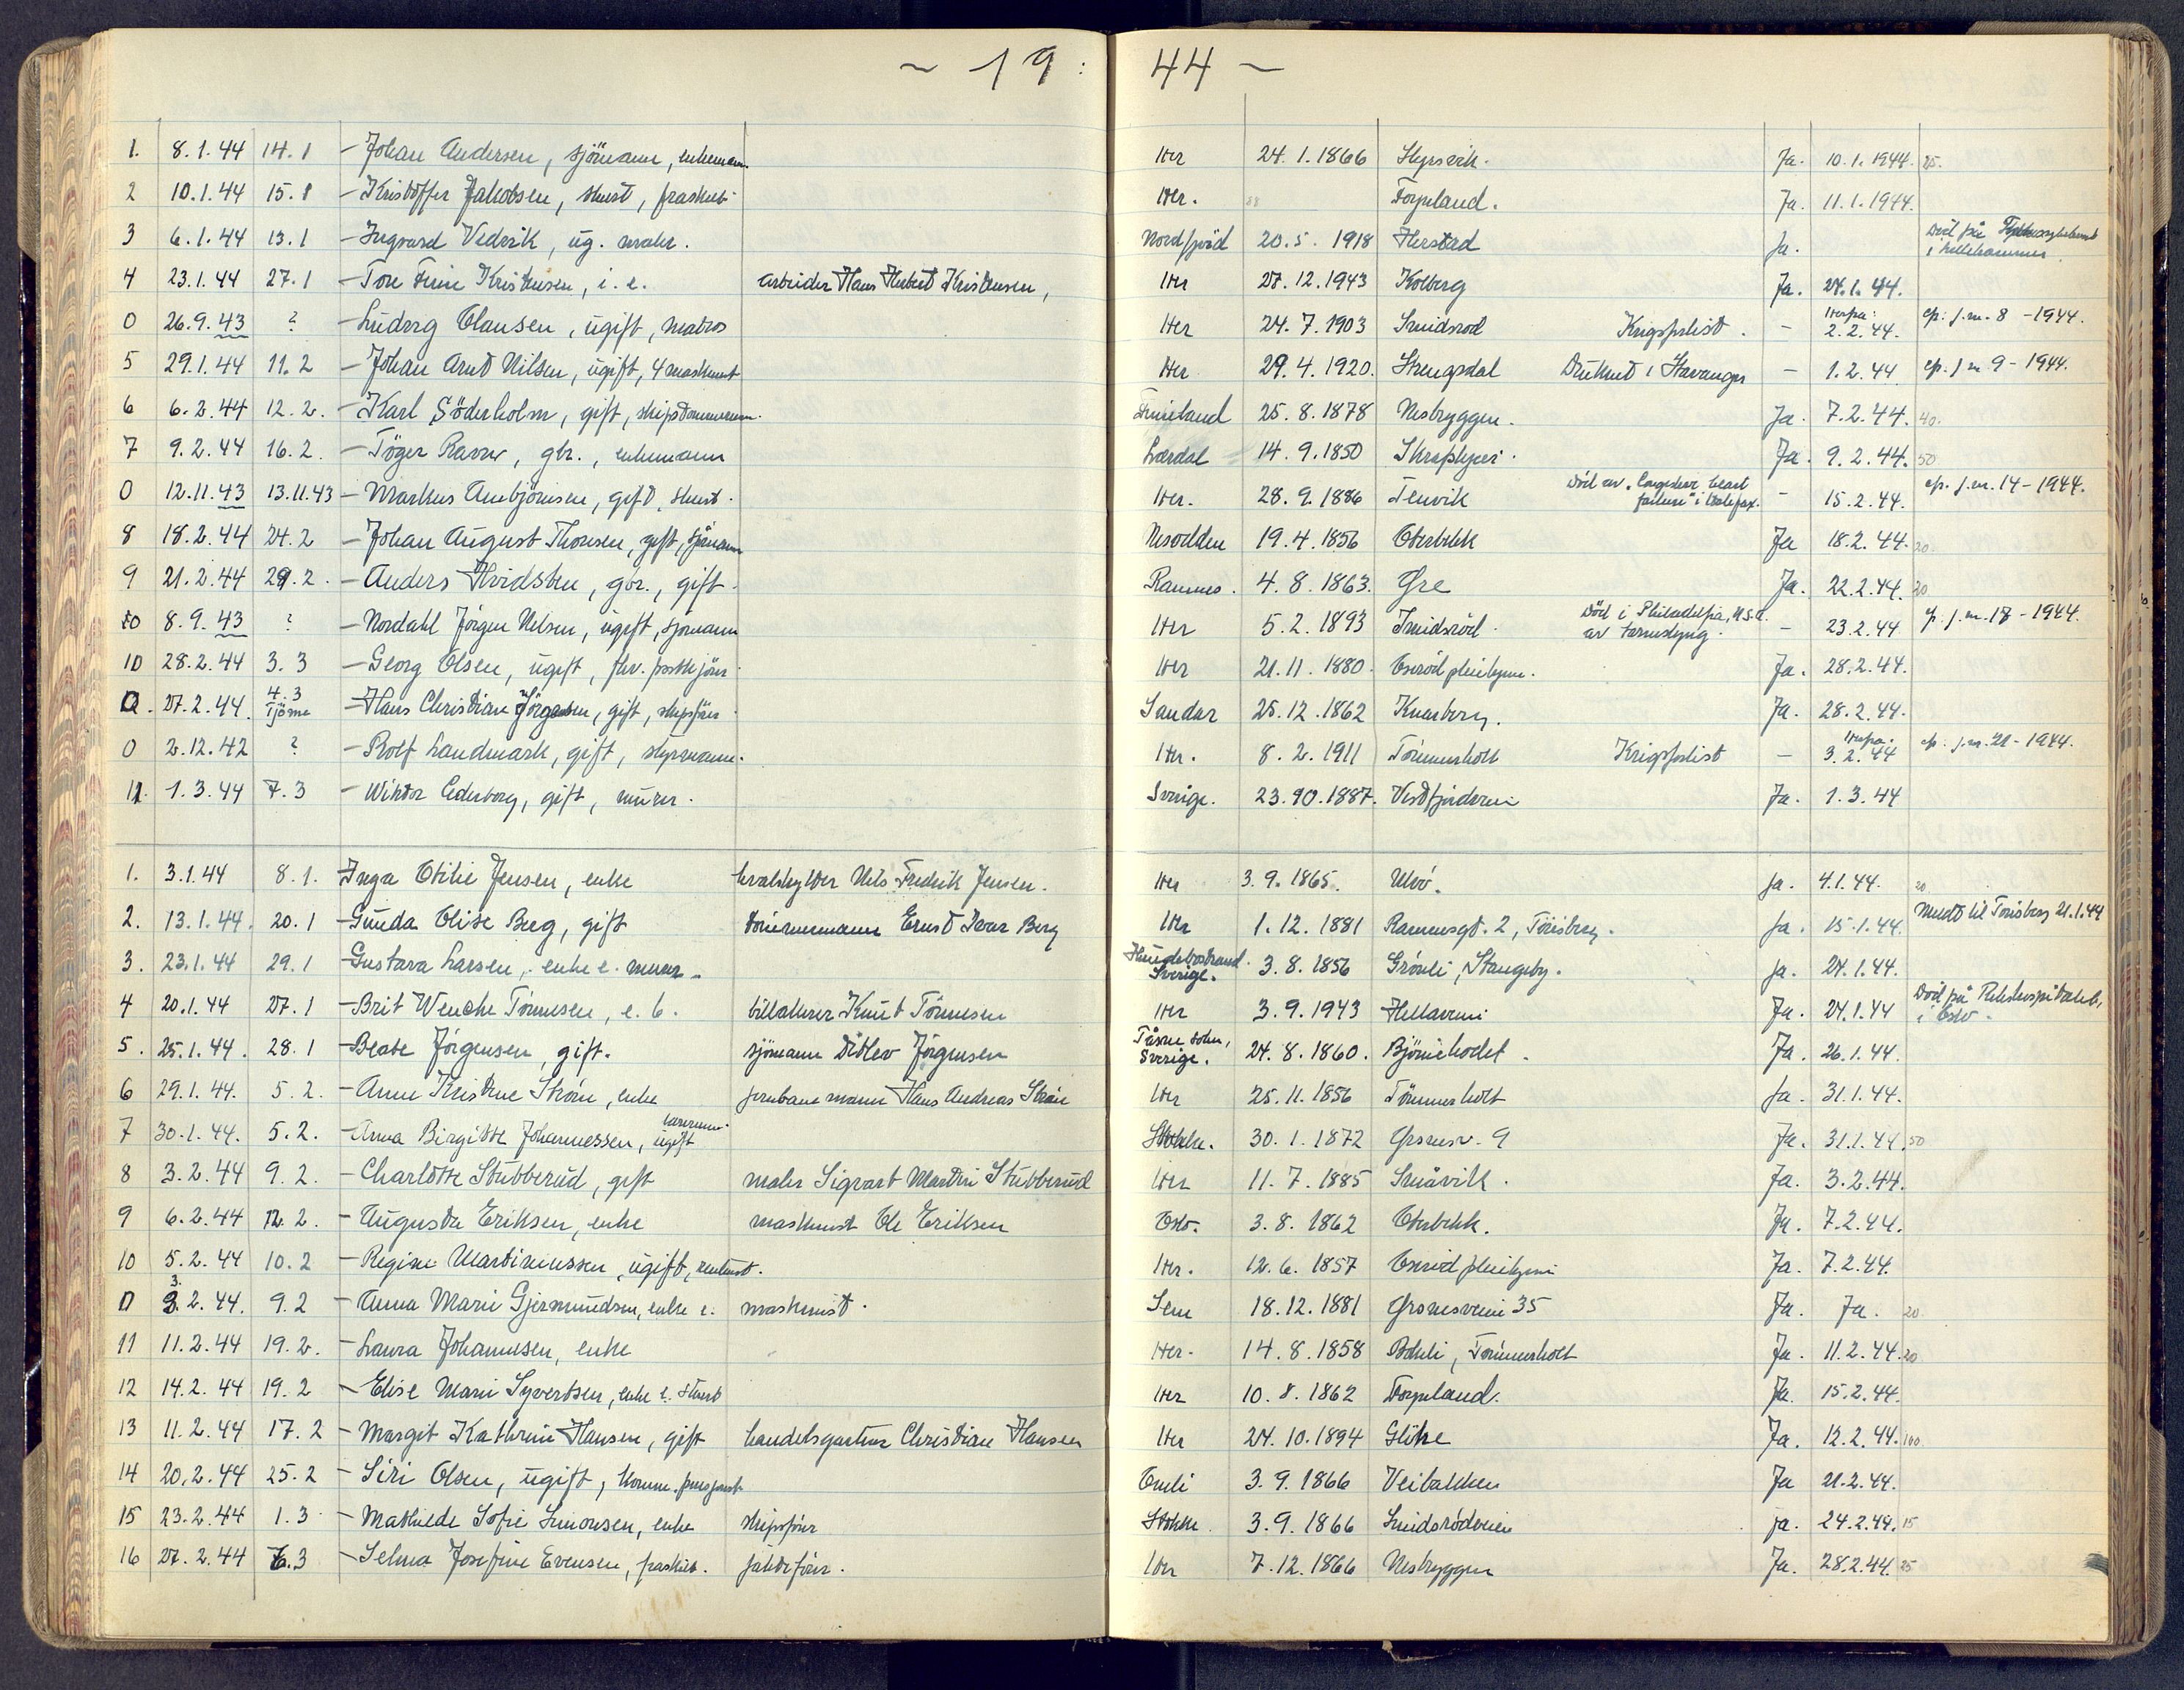 ~ 19: 44 ~
1. 8.1.44 14.1 - Johan Andersen, sjömann, enkemann Her 24.1.1866 Ja. 10.1.1944. 25.
2 10.1.44 15.1 - Kristoffer Jakobsen, fraskilt Her. Torpeland. Ja. 11.1.1944.
3 6.1.44 13.1 - Ingvard Vedvik, ug. maler. 20.5.1918 Herstad Ja. Död på i Lillehammer
4 23.1.44 27.1 - Tore Finn Kristensen, i. e. arbeider Hans Herbert Kristensen, Her 27.12.1943 Kolberg Ja. 24.1.44.
0 26.9.43 ? - Ludvig Olausen, ugift, matros Her 24.7.1903 Smidsrød Krigsforlist. - 2.2.44. cp. j.nr. 8 - 1944.
5 29.1.44 11.2 - Johan Arnt Nilsen, ugift, 4 maskinist Her 29.4.1920. Strengsdal Druknet i Stavanger - 1.2.44 cp. j nr 9 - 1944.
6 6.2.44 12.2. - Karl Söderholm, gift, skipstömmerm. Finnland 25.8.1878 Nesbryggen. Ja. 7.2.44. 40.
7 9.2.44 16.2. - Töger Ravn, gbr., enkemann Lærdal 14.9.1850 Ja. 9.2.44. 50
0 12.11.43 13.11.43 - Markus Ambjörnsen, gift, Her. 28.9.1886 Tenvik Död av "Congestive heart failure" i Halifax. - 15.2.44. cp. j.nr. 14 - 1944.
8 18.2.44 24.2 - Johan August Thorsen, gift, sjömann Nesodden 19.4.1856 Oterbekk Ja 18.2.44. 20
9 21.2.44 29.2. - Anders Hvidsten, gbr., gift. Ramnes. 4.8.1863. Øre Ja. 22.2.44. 20
0 8.9.43 ? - Nordahl Jörgen Nilsen, ugift, sjömann Her 5.2.1893 Smidsröd. Död i Philadelphia, U.S.A. av - 23.2.44 cp. j.nr. 18 - 1944.
10 28.2.44 3.3 - Georg Olsen, ugift, fhv. Her 21.11.1880. Ja. 28.2.44.
0. 27.2.44. 4.3 Tjöme - Hans Christian Jörgensen, gift, skipsförer Sandar 25.12.1862 Knarberg. Ja. 28.2.44.
0 2.12.42 ? - Rolf Landmark, gift, styrmann. Her. 8.2.1911 Tömmerholt Krigsforlist - 3.2.44 cp. j.nr. 21 - 1944.
11. 1.3.44 7.3 - Wiktor Cederborg, gift, murer. Sverige. 23.10.1887. Vestfjordveien Ja. 1.3.44
1. 3.1.44 8.1. Inga Otilie Jensen, enke hvalskytter Nils Fredrik Jensen. Her 3.9.1865. Ulvö. Ja. 4.1.44. 20
2. 13.1.44. 20.1 - Gunda Elise Berg, gift tömmermann Ernst Ivar Berg Her 1.12.1881 Ramnesgt. 2, Tönsberg. Ja. 15.1.44. Meldt til Tönsberg 21.1.44
3. 23.1.44 29.1 - Gustava Larsen, enke e. murer. Hunnebostrand Sverige. 3.8.1856 Grönli, Stangeby. Ja. 24.1.44.
4 20.1.44 27.1 - Brit Wenche Tönnesen, e. b. Knut Tönnesen Her 3.9.1943 Hellaveien Ja. 24.1.44 Död på Rikshospitalet, i Oslo.
5. 25.1.44. 28.1 - Beate Jörgensen, gift. sjömann Ditlev Jörgensen Sverige. 24.8.1860. Björnehodet. Ja. 26.1.44.
6 29.1.44. 5.2. - Anne Kristine Ström, enke jernbanemann Hans Andreas Ström Her 25.11.1856 Tömmerholt Ja. 31.1.44.
7 30.1.44. 5.2. - Anna Birgitte Johannessen, ugift lærerinne Stokke. 30.1.1872 Grsnesv. 9 Ja. 31.1.44. 50
8 3.2.44 9.2. - Charlotte Stubberud, gift maler Sigvart Martin Stubberud Her 11.7.1885 Småvik. Ja. 3.2.44.
9 6.2.44 12.2. - Augusta Eriksen, enke maskinist Ole Eriksen Oslo. 3.8.1862 Oterbekk. Ja. 7.2.44.
10 5.2.44 10.2 - Regine Martinussen, ugift, Her. 12.6.1857 Ja. 7.2.44.
0 3.2.44. 9.2 - Anna Marie Gjermundsen, enke e. maskinist. Sem 18.12.1881 Grsnesveien 35 Ja. Ja. 20
11 11.2.44 19.2. - Laura Johannesen, enke Her. 14.8.1858 Bakli, Tömmerholt Ja. 11.2.44. 20
12 14.2.44 19.2 - Elise Marie Syvertsen, enke e. Her 10.8.1862 Torpeland. Ja. 15.2.44.
13 11.2.44 17.2 - Margit Kathrine Hansen, gift handelsgartner Christian Hansen Her 24.10.1894 Glöke Ja. 12.2.44. 100
14 20.2.44 25.2 - Siri Olsen, ugift, komm. 3.9.1866 Veibakken Ja 21.2.44.
15 23.2.44 1.3 - Mathilde Sofie Simonsen, enke skipsförer Stokke. 3.9.1866 Smidsrödveien ja. 24.2.44. 15
16 27.2.44 6.3 - Selma Josefine Evensen, fraskilt. Her 7.12.1866 Nesbryggen Ja. 28.2.44. 25